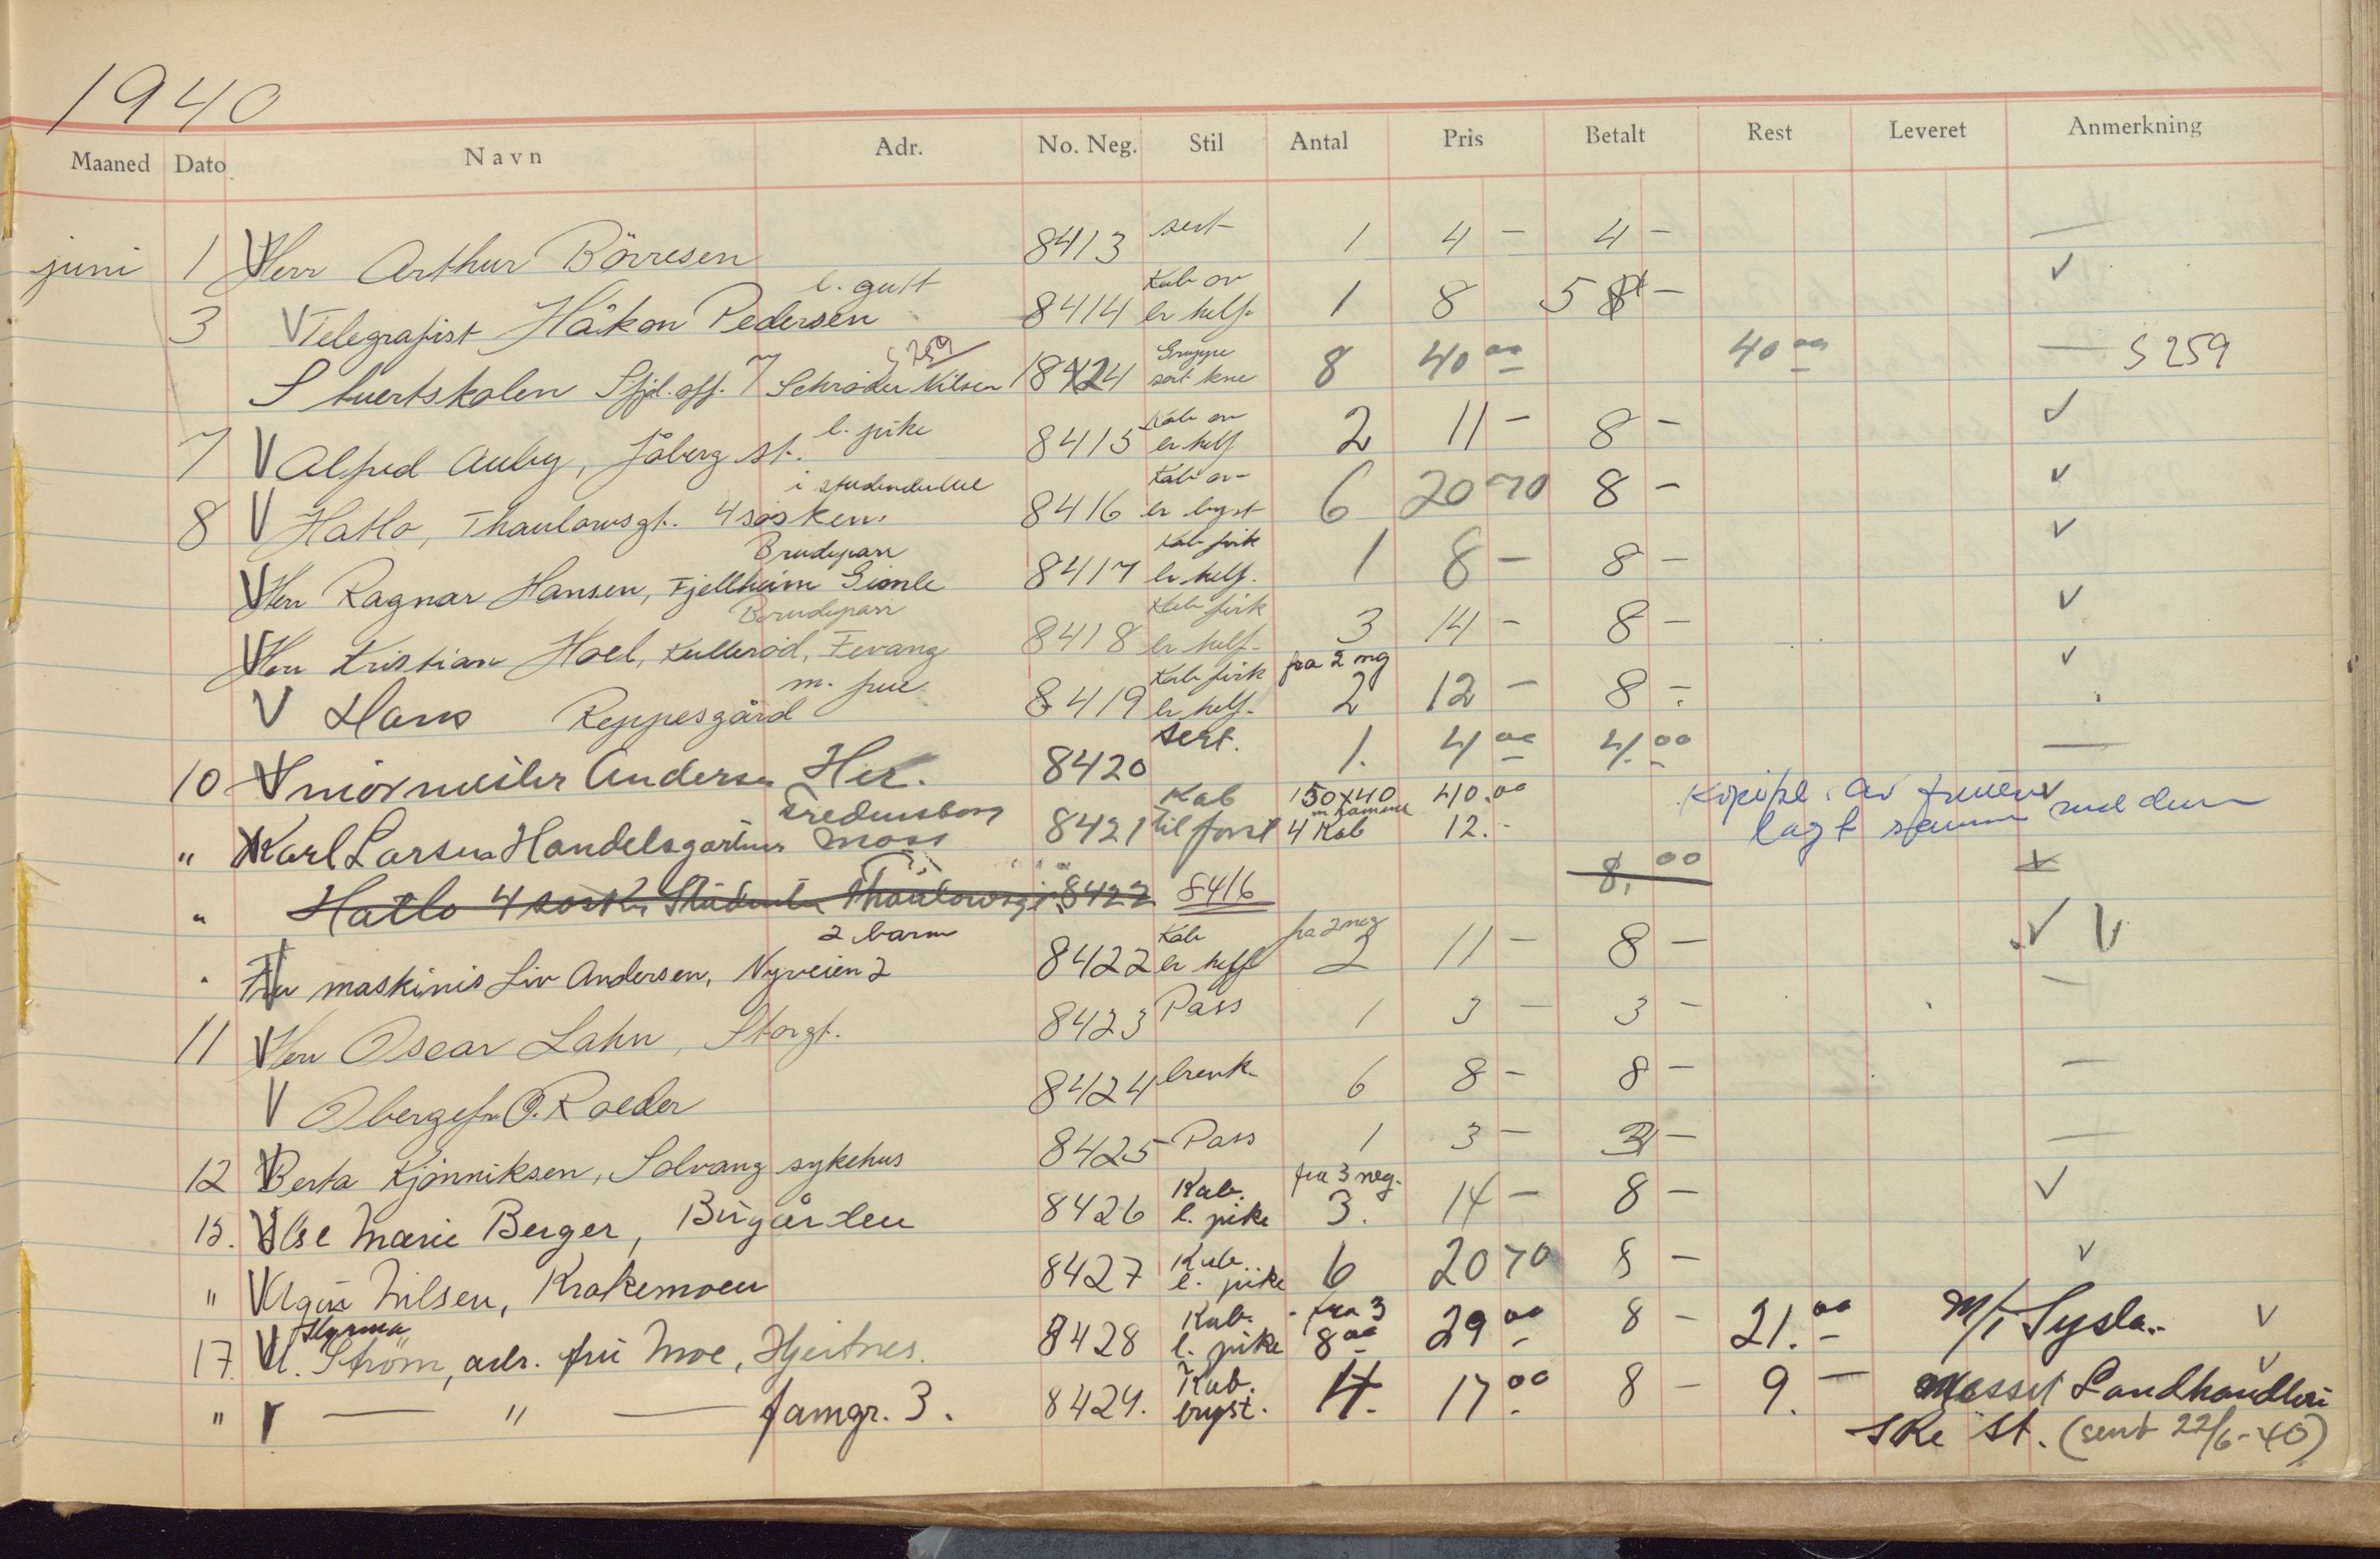 1940
Maaned Dato Navn Adr. No. Neg. Stil Antal Pris Betalt Rest Leveret Anmerkning
juni 1 V Herr Arthur Börresen 8413 sert 1 4 - 4 - —
l. gutt Kab av
3 V Telegrafist Håkon Pedersen 8414 er helf. 1 8 5 - V
S 259 Gruppe
Stuertskolen Sfjd. off. 7 Schrøder Nilsen 8424 sort kne 8 40 00 40 00 — S 259
l. pike Kab av
7 V Alfred Auby, Jåberg st. 8415 er helf 2 11 - 8 - V
i studenterlue Kab av
8 V Hatlo, Thaulowsgt. 4 søsken. 8416 er byst 6 20 70 8 - V
Brudepar Kab pirk
V Herr Ragnar Hansen, Fjellheim Gimle 8417 er helf. 1 8 - 8 - V
Brudepar Kab pirk
V Herr Kristian Hoel, Kullerød, Fevang 8418 er helf. 3 14 - 8 - V
m. frue Kab pirk fra 2 neg
V Hans Reppesgård 8419 er helf. 2 12 - 8 - V
10 V Andersen Her. 8420 sert. 1. 4 00 4. 00 —
Fredensborg Kab 150x40 40.00 Kopipl. av V
m ramme
" Karl Larsen Handelsgartner Moss 8421 til 4 Kab 12.- lagt sammen med den
" Hatlo 4 søsken Studenter Thaulowsgt. 8422 8416 8,00
2 barn Kab fra 2 neg
" V Fru maskinis Liv Andersen, Nyveien 2 8422 er helf 2 11 - 8 - V V
11 V Herr Oscar Lahn, Storgt. 8423 Pass 1 3 - 3 - —
V Obergefr. O. Roeder 8424 brevk. 6 8 - 8 - —
12 V Berta Kjønniksen, Solvang sykehus 8425 Pass 1 3 - 3 - —
Kab. fra 3 neg.
15. V Else Marie Berger, Bugården 8426 l. pike 3. 14 - 8 - V
Kab.
" V Nilsen, Krakemoen 8427 l. pike 6 20 70 8 - V
Styrma Kab. fra 3
17. V U. Strøm, adr. fru Moe, Hjertnes. 8428 l. pike 8 00 29 00 8 - 21. 00 M/T Sysla. V
" V — " — famgr. 3. 8429. Kab. bryst. 4. 17 00 8 - 9. - Landhandleri V
Ske st. (sent 22/6-40)